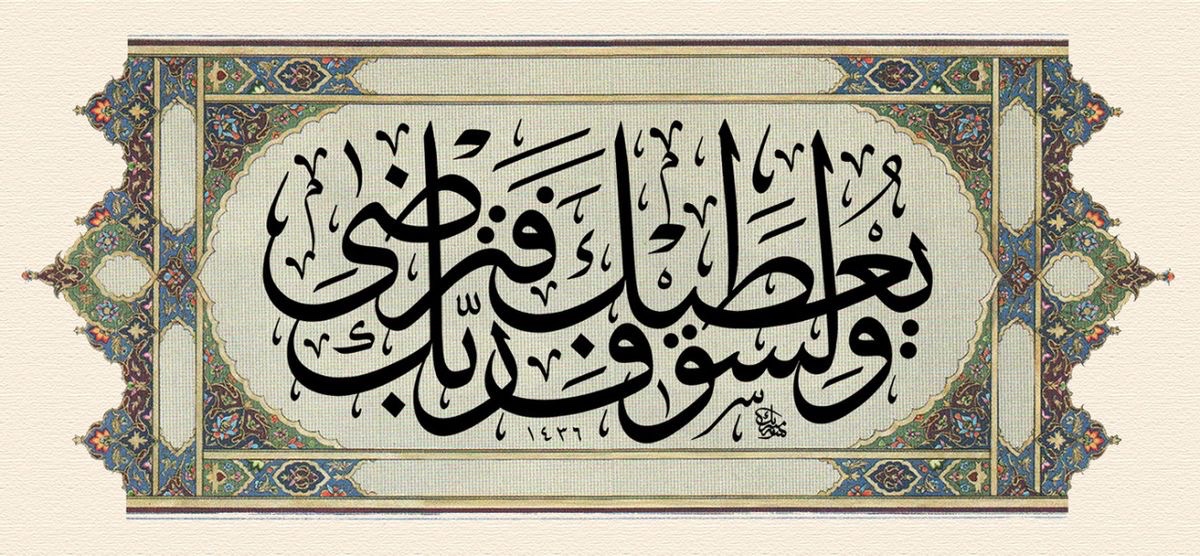 ولسوف يعطيك ربك فترضى
١٤٣٦